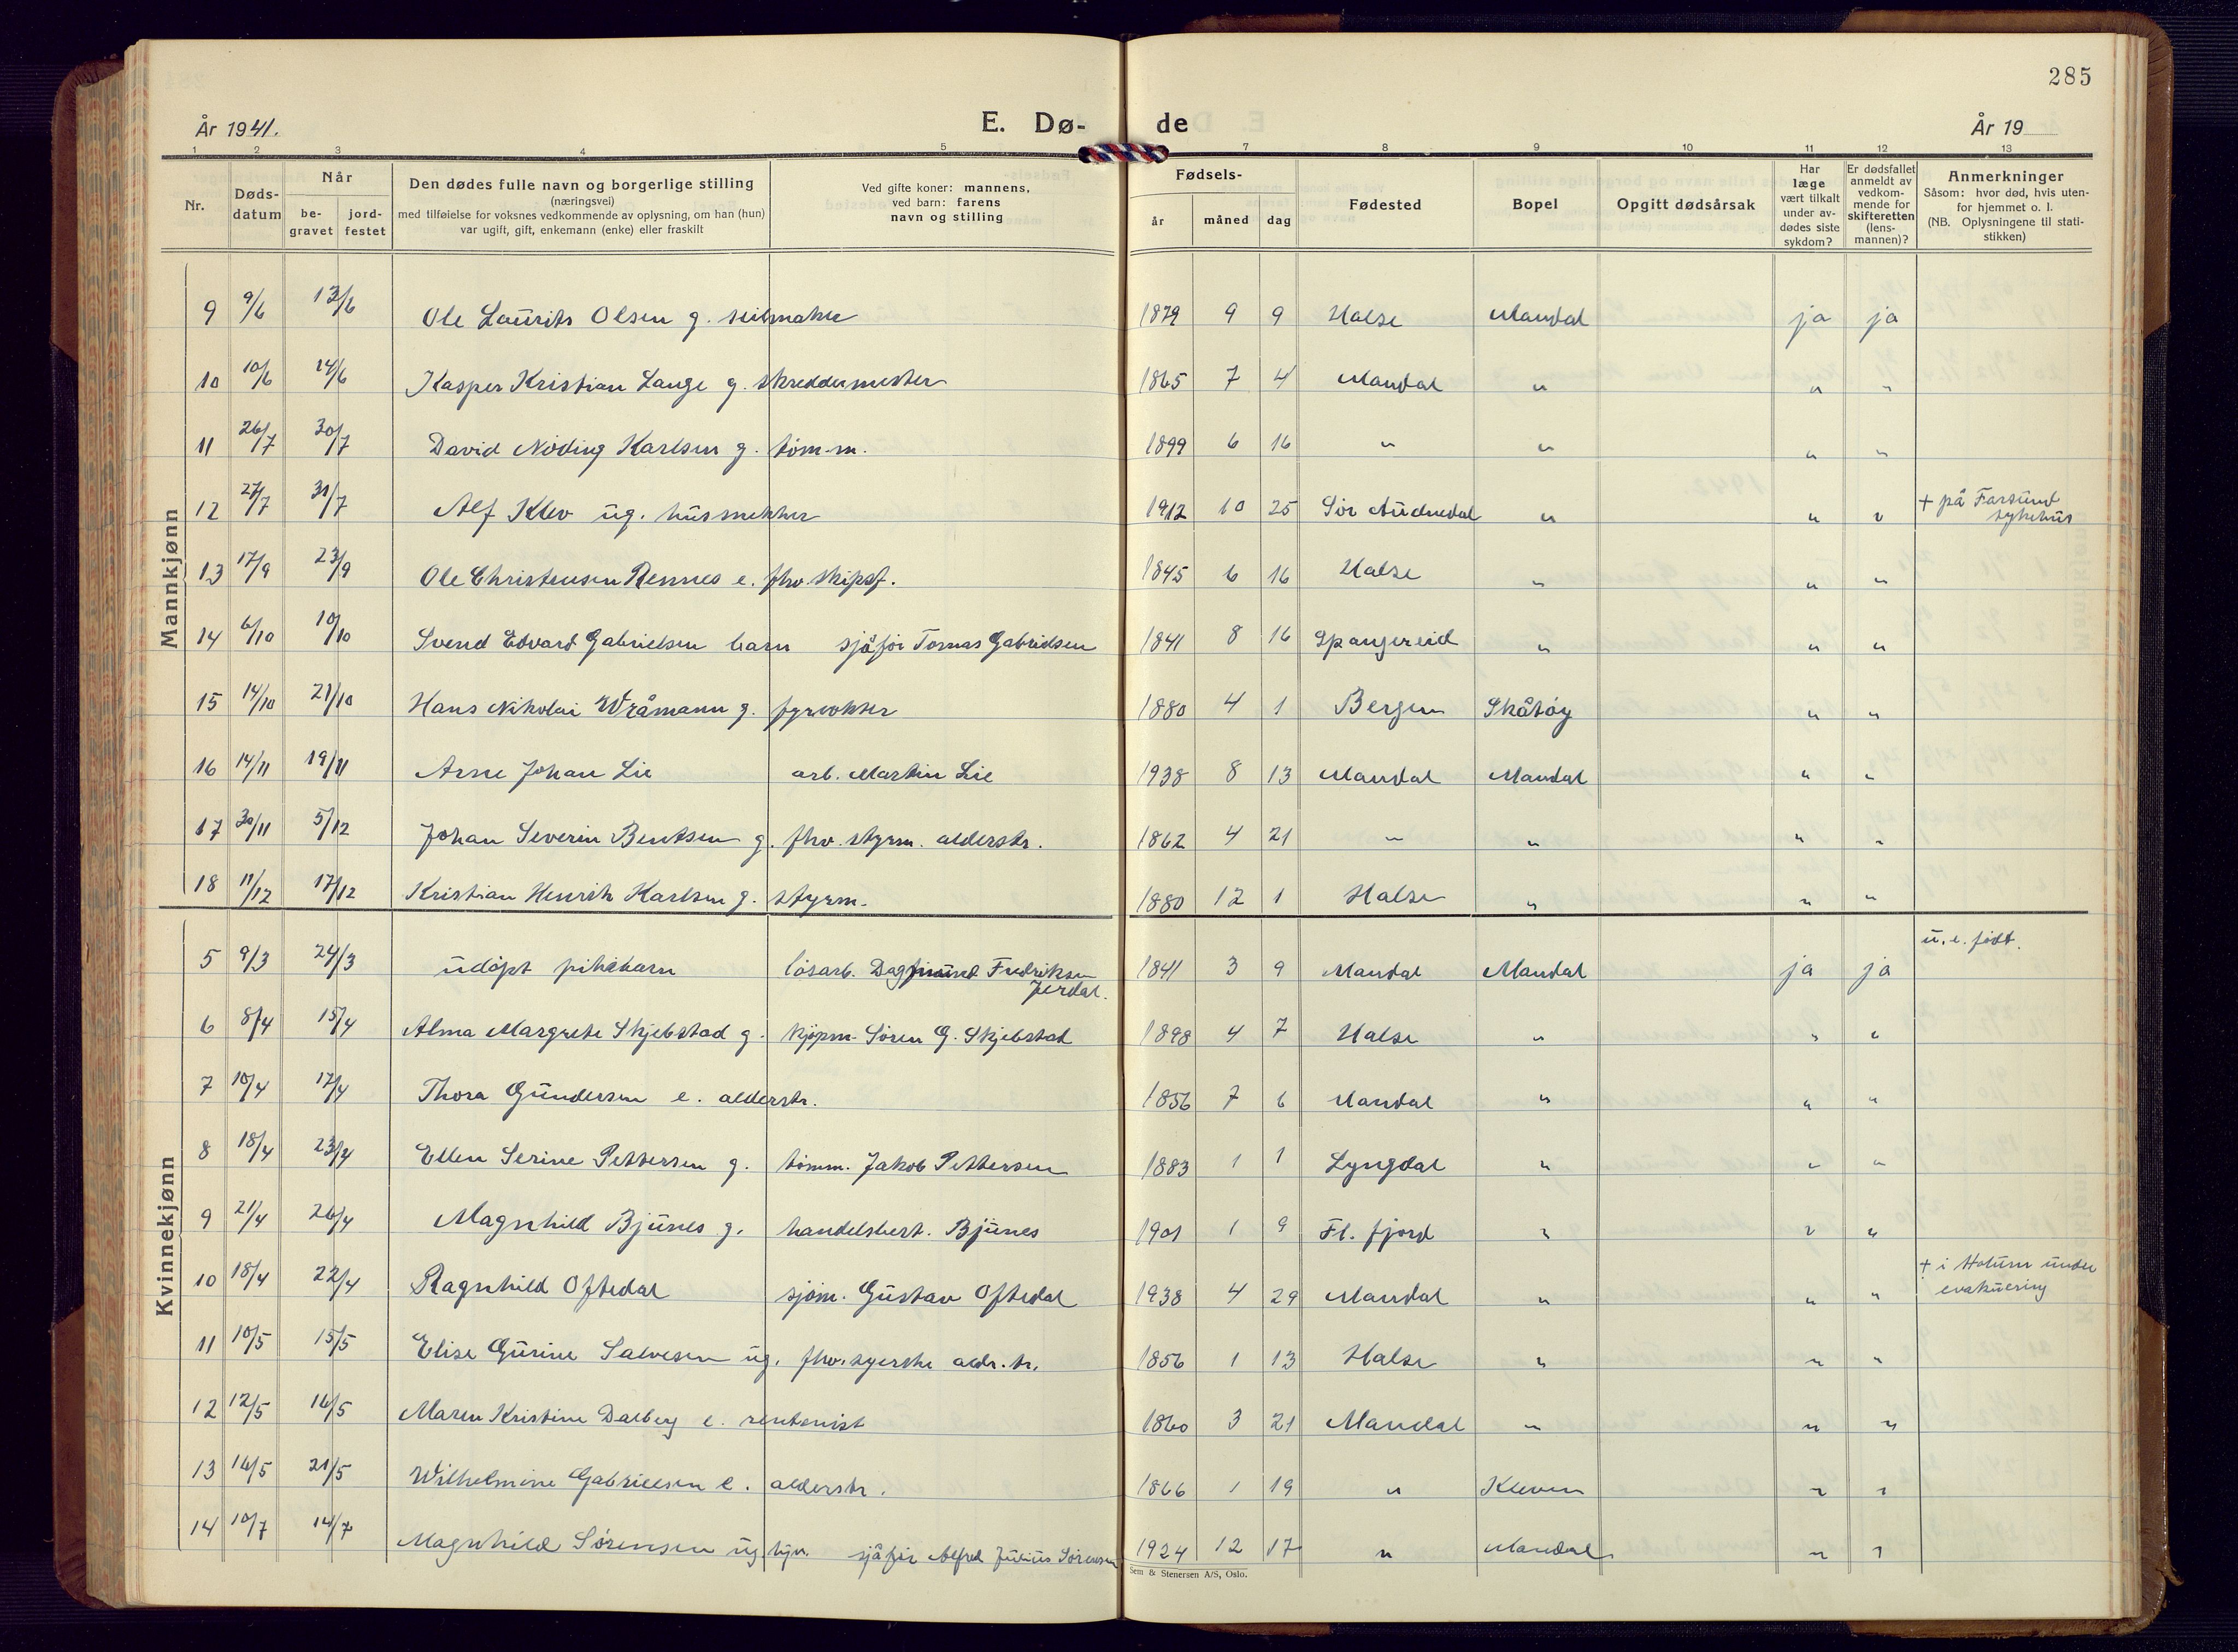 285
År 1941.
E. Dø-
de
År 19
1 2 3 4 5 7 8 9 10 11 12 13
Nr.
Døds-
datum
Når
be-
gravet
jord-
festet
Den dødes fulle navn og borgerlige stilling
(næringsvei)
med tilføielse for voksnes vedkommende av oplysning, om han (hun)
var ugift, gift, enkemann (enke) eller fraskilt
Ved gifte koner: mannens,
ved barn: farens
navn og stilling
Fødsels-
år måned dag
Fødested
Bopel
Opgitt dødsårsak
Har
læge
vært tilkalt
under av-
dødes siste
sykdom?
Er dødsfallet
anmeldt av
vedkom-
mende for
skifteretten
(lens-
mannen)?
Anmerkninger
Såsom: hvor død, hvis uten-
for hjemmet o. l.
(NB. Oplysningene til stati-
stikken)
Mannkjønn
9 9/6 13/6 Ole Laurits Olsen g. seilmaker 1879 9 9 Halse Mandal ja ja
10 10/6 14/6 Kasper Kristian Lange g. skreddermester 1865 7 4 Mandal " " "
11 26/7 30/7 David Nöding Karlsen g. töm.m. 1899 6 16 " " " "
12 27/7 31/7 Alf Klev ug. husmekker 1912 10 25 Sör Audnedal " " " + på Farsund
sykehus
13 17/9 23/9 Ole Christensen Rennes e. fhv. skipsf. 1845 6 16 Halse " " "
14 6/10 10/10 Svend Edvard Gabrielsen barn sjåför Tomas Gabrielsen 1841 8 16 Spangereid " " "
15 14/10 21/10 Hans Nikolai Wråmann g. fyrvokter 1880 4 1 Bergen Skåtöy " "
16 14/11 19/11 Arne Johan Lie arb. Martin Lie 1938 8 13 Mandal Mandal " "
17 30/11 5/12 Johan Severin Bentsen g. fhv. styrm. alderstr. 1862 4 21 " " " "
18 11/12 17/12 Kristian Henrik Karlsen g. styrm. 1880 12 1 Halse " " "
Kvinnekjønn
5 9/3 24/3 udöpt pikebarn lösarb. Dagfinn Fredriksen 1841 3 9 Mandal Mandal ja ja u. e. född.
Jerdal.
6 8/4 15/4 Alma Margrete Skjebstad g. kjöpm. Sören G. Skjebstad 1898 4 7 Halse " " "
7 10/4 17/4 Thora Gundersen e. alderstr. 1856 7 6 Mandal " " "
8 18/4 23/4 Ellen Serine Pettersen g. tömm. Jakob Pettersen 1883 1 1 Lyngdal " " "
9 21/4 26/4 Magnhild Bjunes g. handelsbest. Bjunes 1901 1 9 Fl. fjord " " "
10 18/4 22/4 Ragnhild Oftedal sjöm. Gustav Oftedal 1938 4 29 Mandal " " " + i Holum under
evakuering
11 10/5 15/5 Elise Gurine Salvesen ug. fhv. syerske aldr. tr. 1856 1 13 Halse " " "
12 12/5 16/5 Maren Kristine Dalberg e. rentenist 1860 3 21 Mandal " " "
13 16/5 21/5 Wilhelmine Gabrielsen e. alderstr. 1866 1 19 " Kleven " "
14 10/7 14/7 Magnhild Sörensen ug. hjv. sjåför Alfred Julius Sörensen 1924 12 17 " Mandal " "
Sem & Stenersen A/S, Oslo.